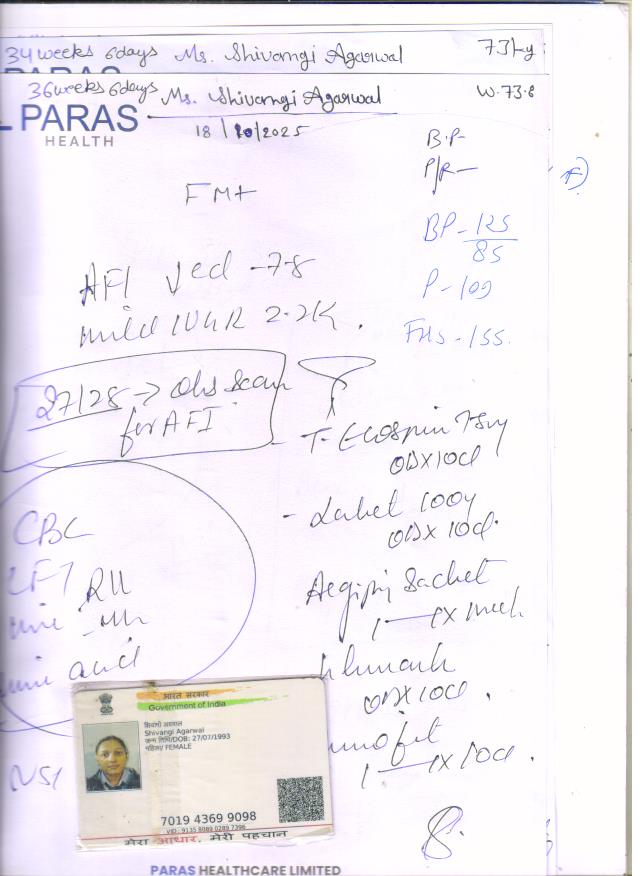 34 weeks 6days Ms. Shivangi Agarwal 73kg
36weeks 6days Ms. Shivangi Agarwal W. 73.8
PARAS
HEALTH
18/10/2025
B.P-
P/R-
FM+
BP-125/85
AFI ↓ed -7.8
P-109
mild IUGR 2.2K.
FHS-155.
27/28 → Obs scan
for AFI
T- Ecosprin 75mg
OD x 10d
- Labet 100mg
OD x 10d.
CBC
LFT
RU
Sachet
1 — 1 x 1 week
acid
OD x 10d.
1 — 1 x 10d.
NST
भारत सरकार
Government of India
शिवांगी अग्रवाल
Shivangi Agarwal
जन्म तिथि/DOB: 27/07/1993
महिला/ FEMALE
7019 4369 9098
VID: 9135 8089 0289 7396
मेरा आधार, मेरी पहचान
PARAS HEALTHCARE LIMITED